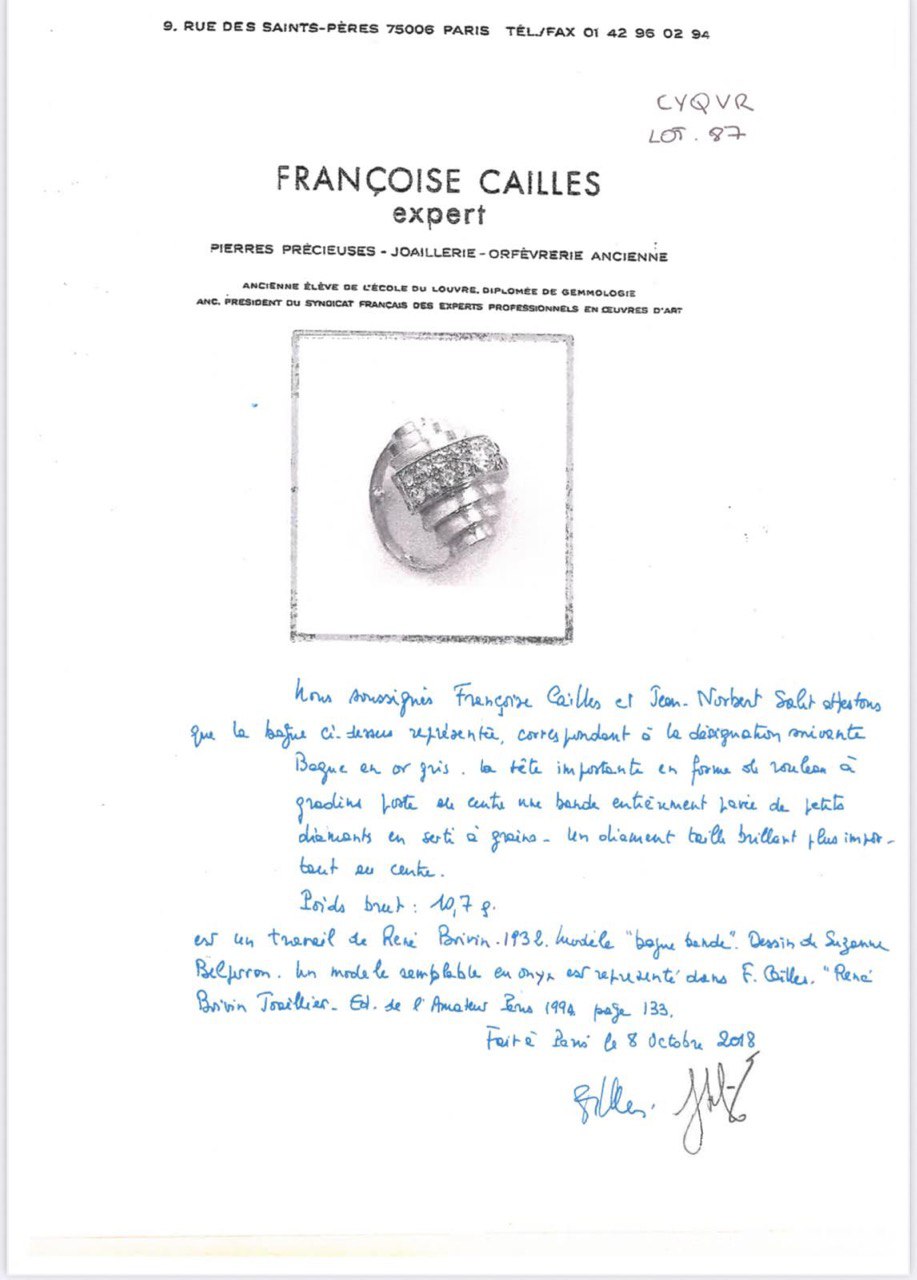 9. RUE DES SAINTS-PÈRES 75006 PARIS TÉL./FAX 01 42 96 02 94
CYQVR
LOT. 87
FRANÇOISE CAILLES
expert
PIERRES PRÉCIEUSES - JOAILLERIE - ORFÈVRERIE ANCIENNE
ANCIENNE ÉLÈVE DE L'ÉCOLE DU LOUVRE. DIPLOMÉE DE GEMMOLOGIE
ANC. PRESIDENT DU SYNDICAT FRANÇAIS DES EXPERTS PROFESSIONNELS EN ŒUVRES D'ART
Nous soussignés Françoise Cailles et Jean-Norbert Salit attestons
que la bague ci-dessus représentée, correspondant à la désignation suivante
Bague en or gris. la tête importante en forme de rouleau à
gradins porte au centre une bande entièrement pavée de petits
diamants en serti à grains - Un diamant taille brillant plus impor-
tant au centre.
Poids brut : 10,7 g.
est un travail de René Boivin. 1932. Modèle "bague bande". Dessin de Suzanne
Belperron. Un modele semblable en onyx est représenté dans F. Cailles. "René
Boivin Joaillier - Ed. de l'Amateur Paris 1994 page 133.
Fait à Paris le 8 Octobre 2018
Cailles.